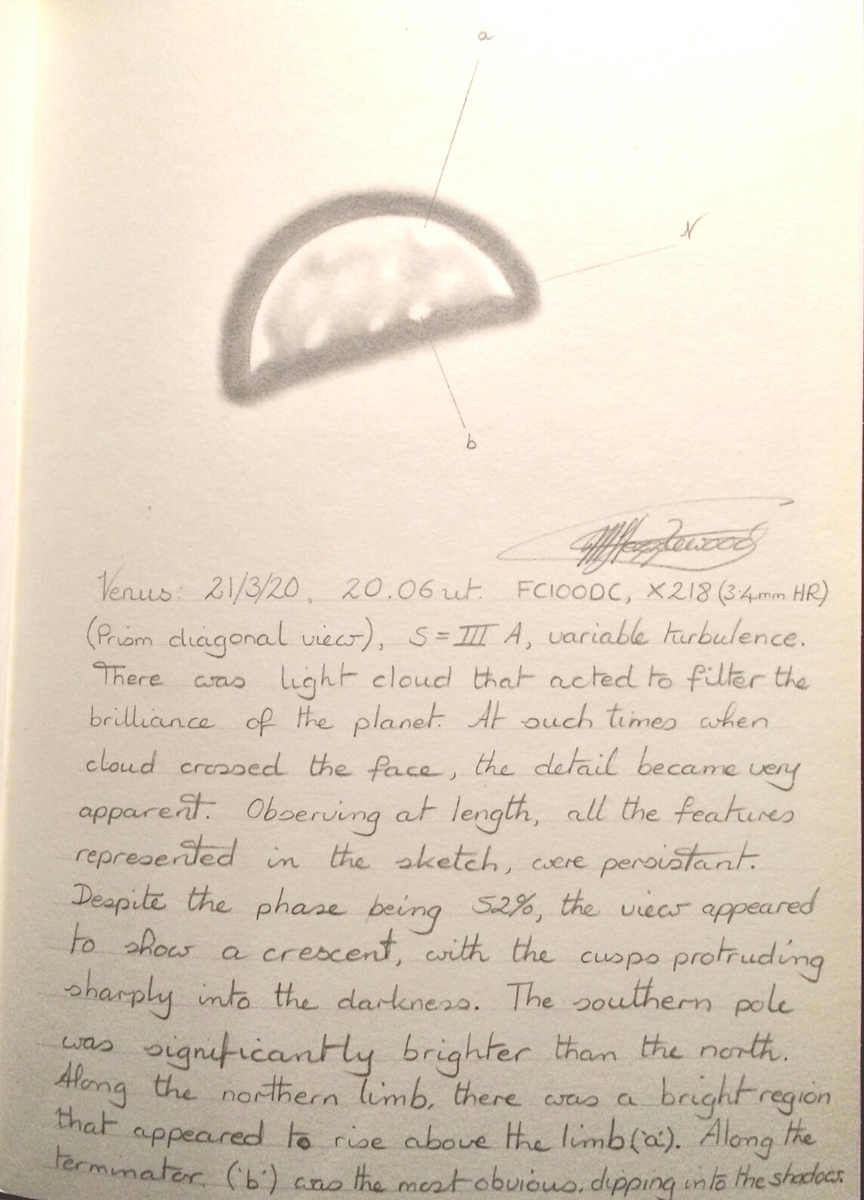 a
N
b
Venus: 21/3/20, 20.06 ut. FC100DC, X218 (3.4mm HR)
(Prism diagonal view), S = III A, variable turbulence.
There was light cloud that acted to filter the
brilliance of the planet. At such times when
cloud crossed the face, the detail became very
apparent. Observing at length, all the features
represented in the sketch, were persistant.
Despite the phase being 52%, the view appeared
to show a crescent, with the cusps protruding
sharply into the darkness. The southern pole
was significantly brighter than the north.
Along the northern limb, there was a bright region
that appeared to rise above the limb ('a'). Along the
terminator, ('b') was the most obvious, dipping into the shadows